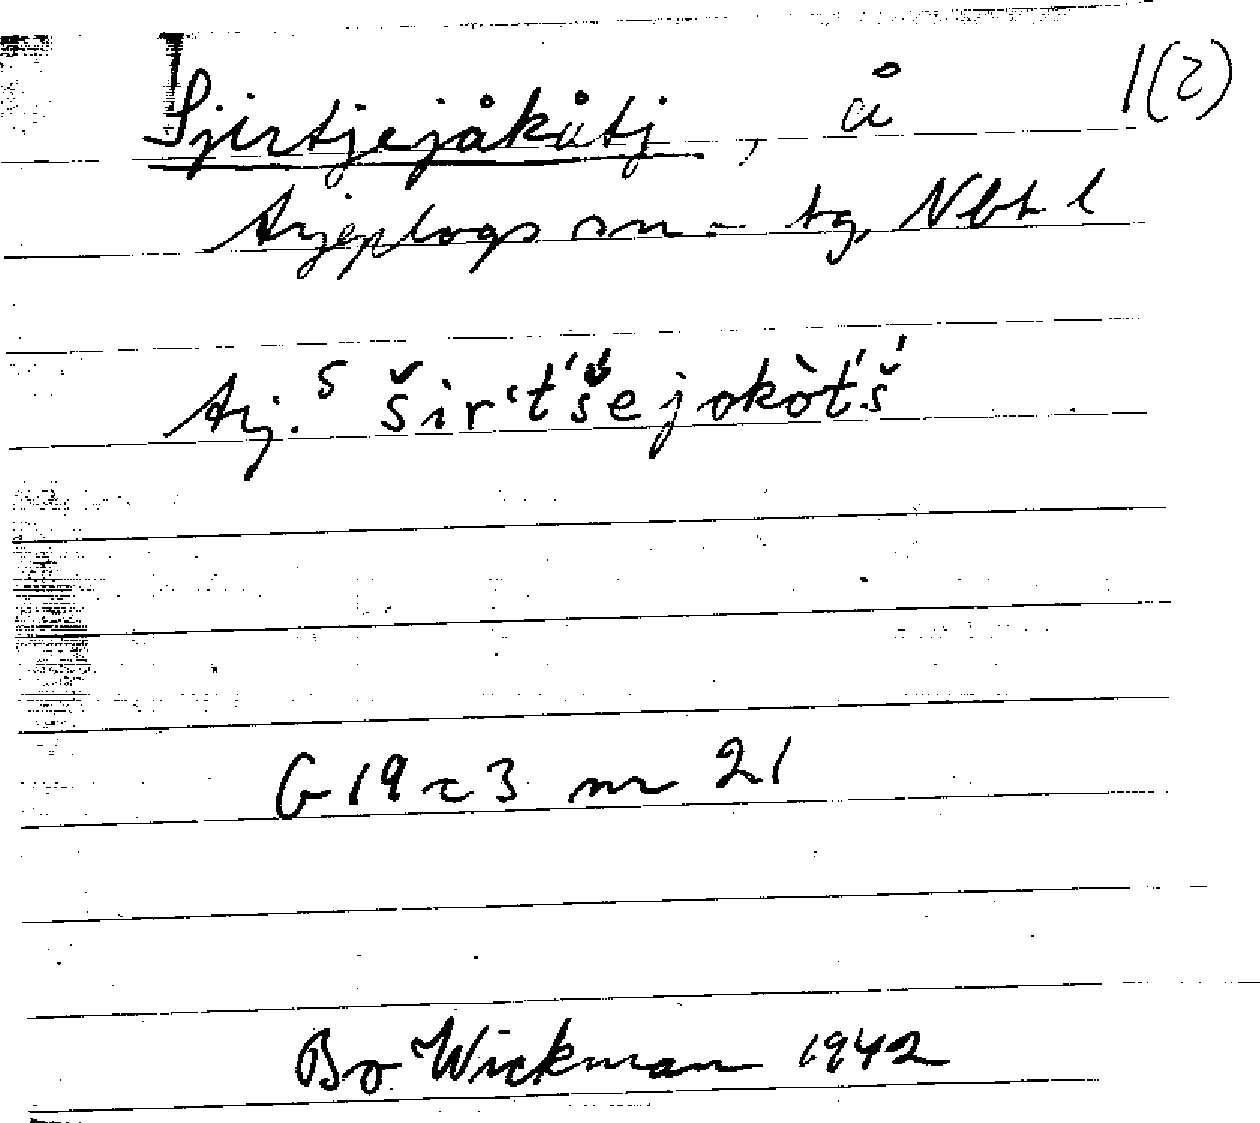 Sjirtjejåkåtj, å 1(2)
Arjeplogs sn - tg, Nbt l
Arj. S šir‘t́š́ejokòt́š́
G 19 c 3 nr 21
Bo Wickman 1942